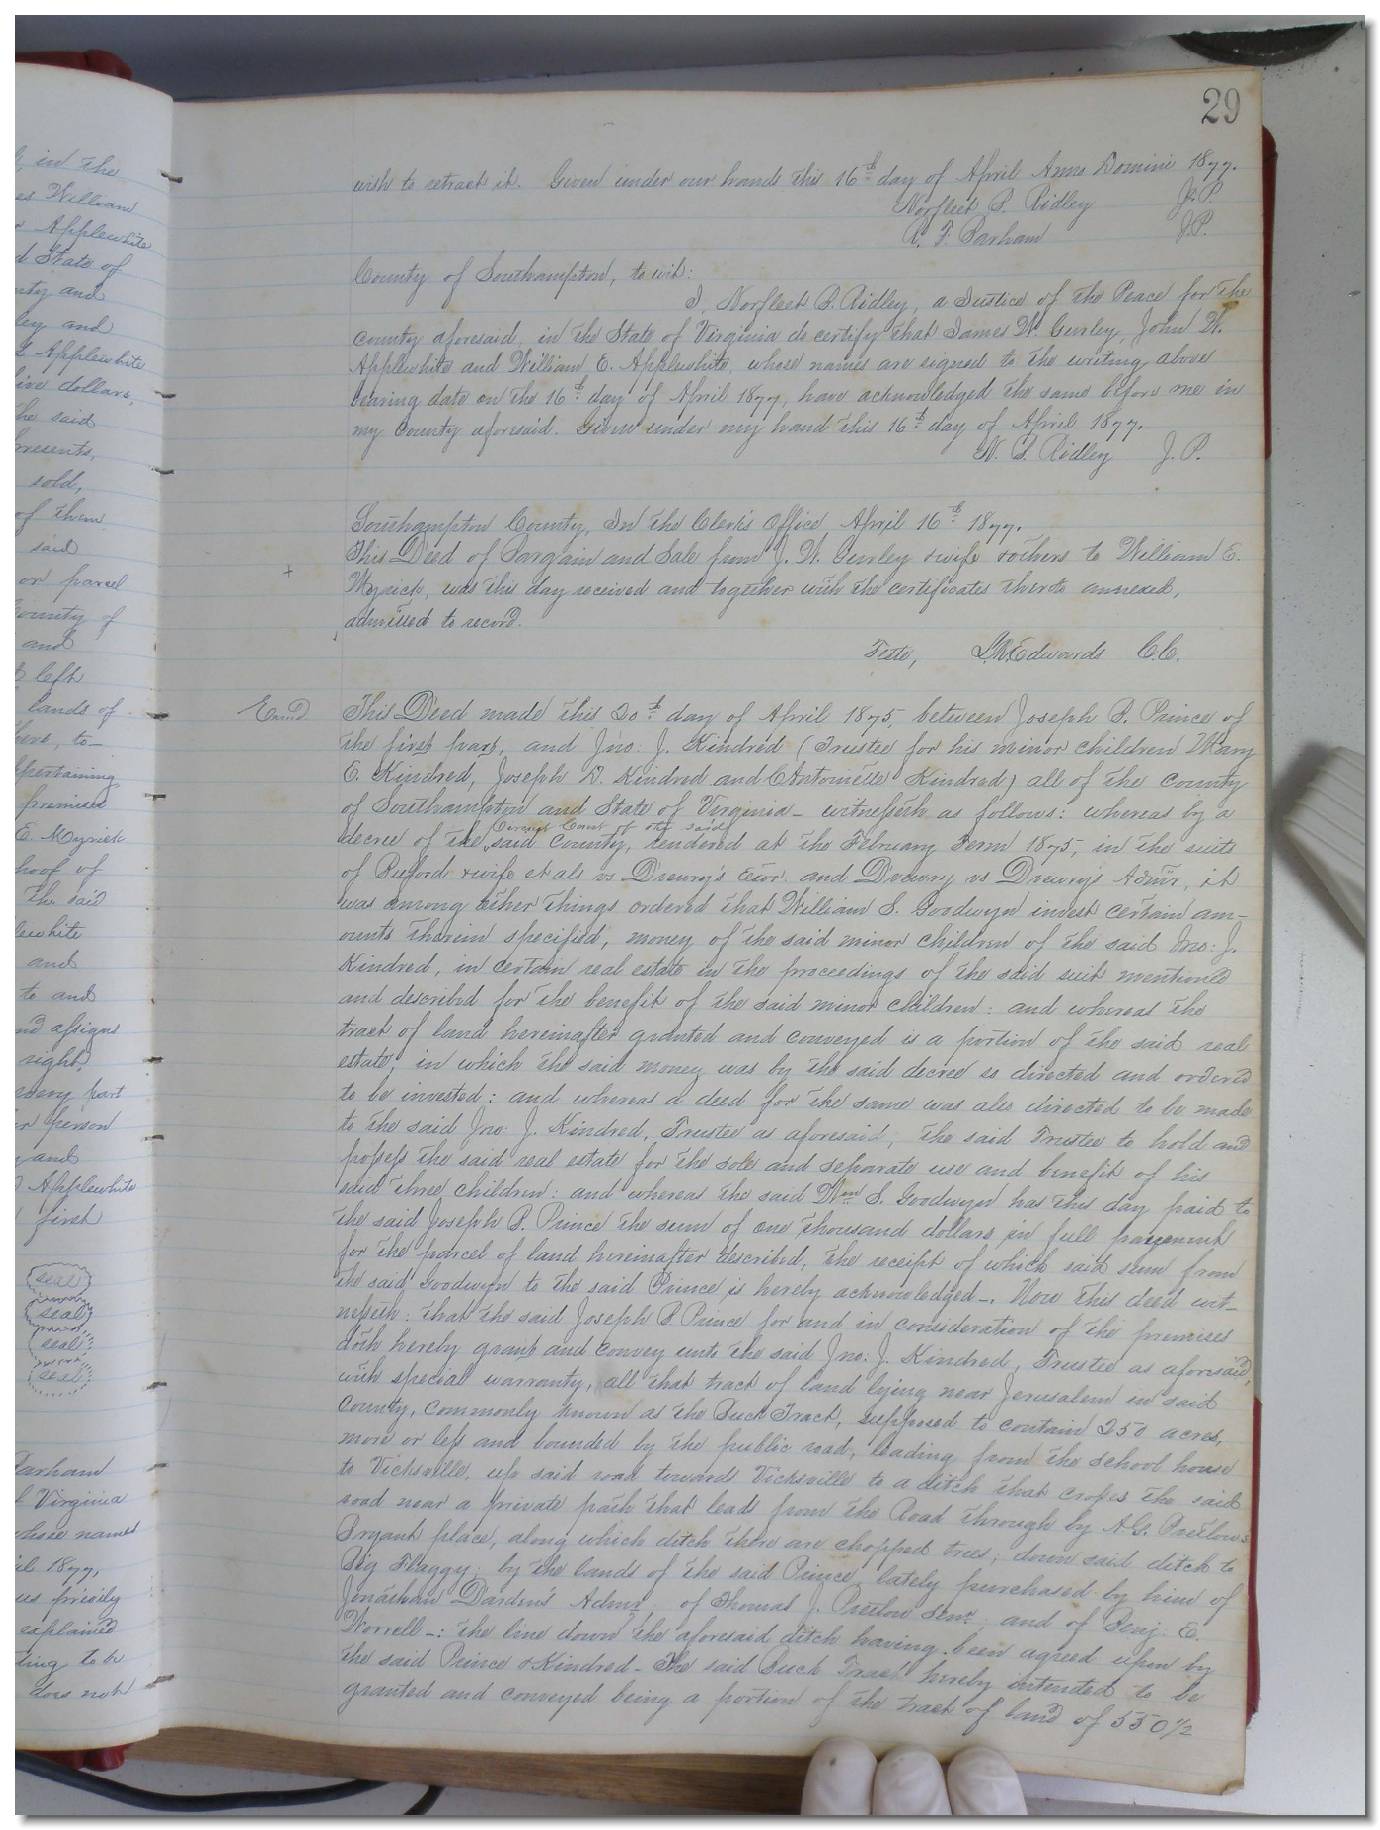 29
wish to retract it. Given under our hands this 16th day of April Anno Domini 1877.
Norfleet B. Ridley J.P.
R. F. Parham J.P.
County of Southampton, to wit:
I, Norfleet B. Ridley, a Justice of the Peace for the
county aforesaid, in the State of Virginia do certify that James W. Gurley, John W.
Applewhite and William E. Applewhite, whose names are signed to the writing above
bearing date on the 16th day of April 1877, have acknowledged the same before me in
my County aforesaid. Given under my hand this 16th day of April 1877.
N. B. Ridley J. P.
Southampton County, In the Clerks Office April 16th 1877.
This Deed of Bargain and Sale from J. W. Gurley & wife & others to William E.
+ Myrick, was this day received and together with the certificates thereto annexed,
admitted to record.
Teste, L.R. Edwards C.C.
Exmd This Deed made this 20th day of April 1875, between Joseph B. Prince of
the first part, and Jno: J. Kindred (Trustee for his minor children Mary
E. Kindred, Joseph D. Kindred and Antoinette Kindred) all of the County
of Southampton and State of Virginia - witnesseth as follows: whereas by a
Circuit Court of the said
decree of the said County, rendered at the February Term 1875, in the suits
of Buford & wife et als vs Drewry's Exor. and Drewry vs Drewry's Admr, it
was among other things ordered that William S. Goodwyn invest certain am-
ounts therein specified, money of the said minor children of the said Jno: J.
Kindred, in certain real estate in the proceedings of the said suit mentioned
and described for the benefit of the said minor children: and whereas the
tract of land hereinafter granted and conveyed is a portion of the said real
estate, in which the said money was by the said decree so directed and ordered
to be invested: and whereas a deed for the same was also directed to be made
to the said Jno: J. Kindred, Trustee as aforesaid, the said Trustee to hold and
possess the said real estate for the sole and separate use and benefit of his
said three children: and whereas the said Wm S. Goodwyn has this day paid to
the said Joseph B. Prince the sum of one thousand dollars in full payment
for the parcel of land hereinafter described, the receipt of which said sum from
the said Goodwyn to the said Prince is hereby acknowledged-. Now this deed wit-
nesseth: that the said Joseph B Prince for and in consideration of the premises
doth hereby grant and convey unto the said Jno: J. Kindred, Trustee as aforesaid,
with special warranty, all that tract of land lying near Jerusalem in said
County, commonly known as the Buck Tract, supposed to contain 250 acres,
more or less and bounded by the public road, leading from the school house
to Vicksville, up said road towards Vicksville to a ditch that crosses the said
road near a private path that leads from the Road through by A.G. Pretlow's
Bryant place, along which ditch there are chopped trees; down said ditch to
Big Flaggy; by the lands of the said Prince, lately purchased by him of
Jonathan Darden's Admr, of Thomas J. Pretlow Senr. and of Benj. E.
Worrell-: the line down the aforesaid ditch having been agreed upon by
the said Prince & Kindred - The said Buck Tract hereby intended to be
granted and conveyed being a portion of the tract of land of 550 1/2
in the
William
Applewhite
State of
and
and
Applewhite
dollars,
he said
presents,
sold,
of them
said
or parcel
County of
and
left
lands of
to-
premises
E. Myrick
hoof of
the said
and
to and
assigns
right,
part
person
and
Applewhite
first
seal
seal
seal
seal
Parham
Virginia
whose names
1877,
privily
explained
to be
does not